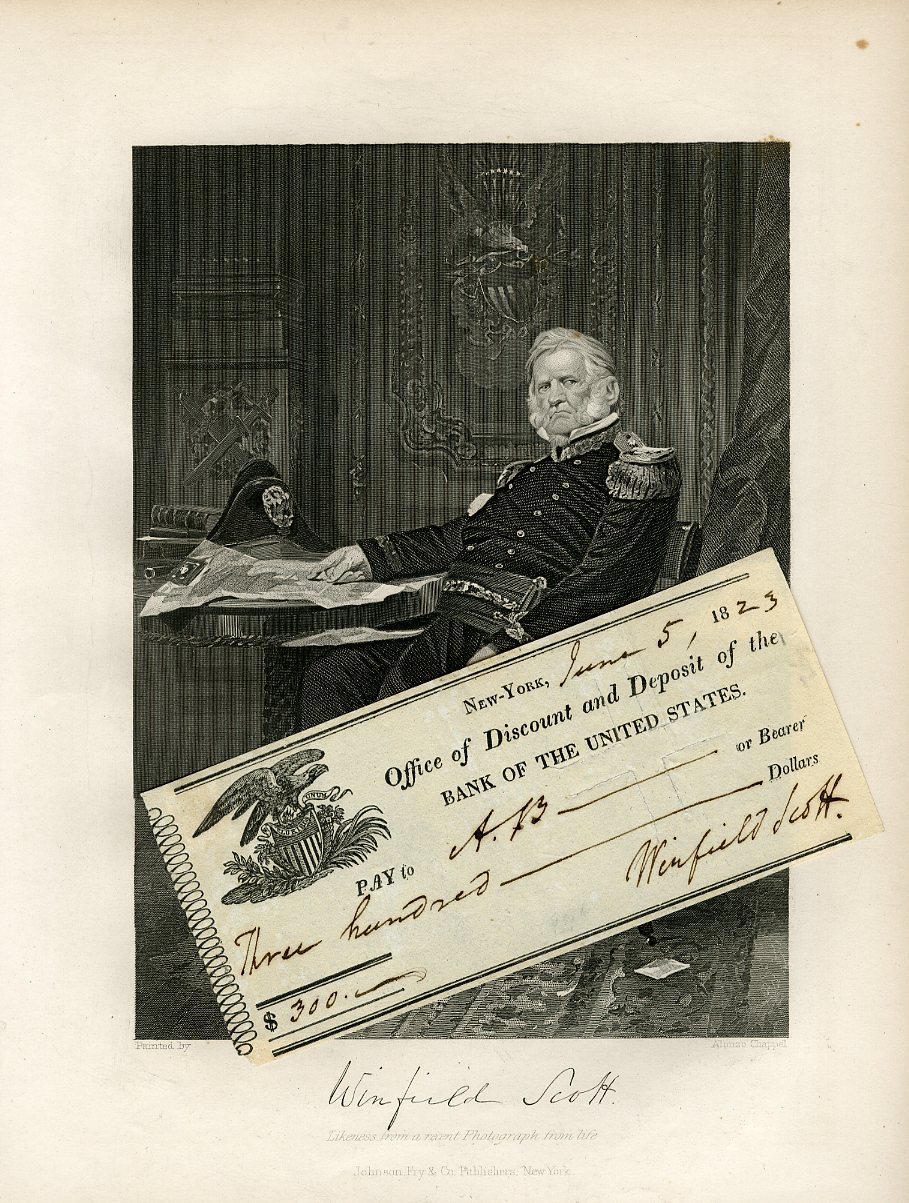 New-York, June 5, 1823
Office of Discount and Deposit of the
BANK OF THE UNITED STATES.
PAY to A. B or Bearer
Three hundred Dollars
Winfield Scott.
$ 300.
UNUM
Painted by Alonzo Chappel
Winfield Scott.
Likeness from a recent Photograph from life
Johnson, Fry & Co. Publishers, New York.